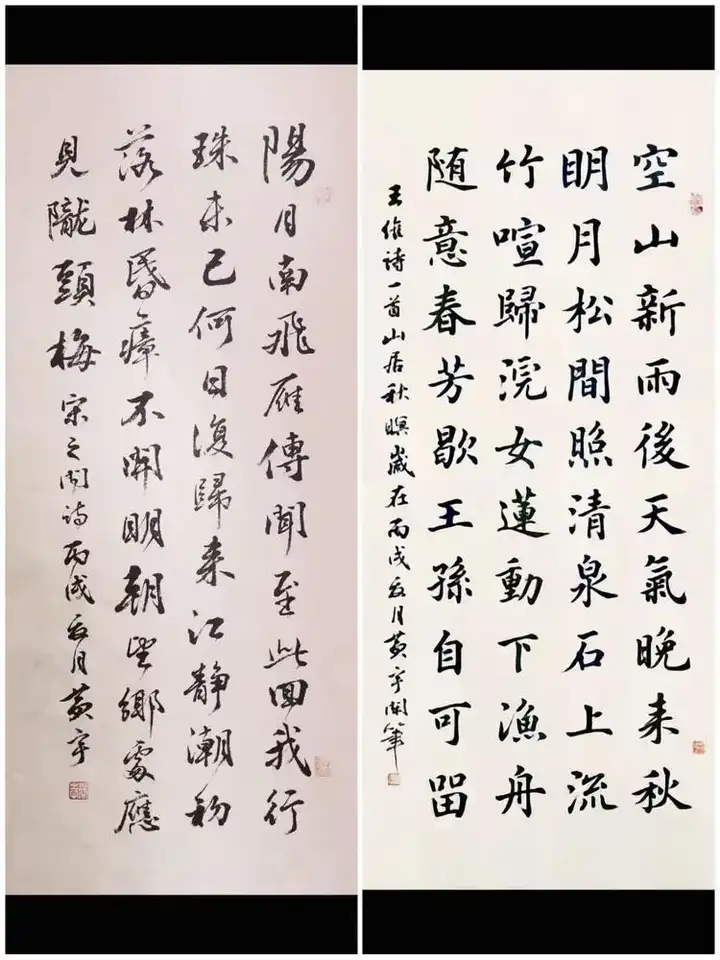 陽月南飛雁傳聞至此回我行
殊未已何日復歸来江靜潮初
落林昏瘴不開明朝望鄉處應
見隴頭梅 宋之問詩丙戌夏月黃宇
空山新雨後天氣晚来秋
明月松間照清泉石上流
竹喧歸浣女蓮動下漁舟
随意春芳歇王孫自可留
王維詩一首山居秋暝歲在丙戌夏月黃宇筆